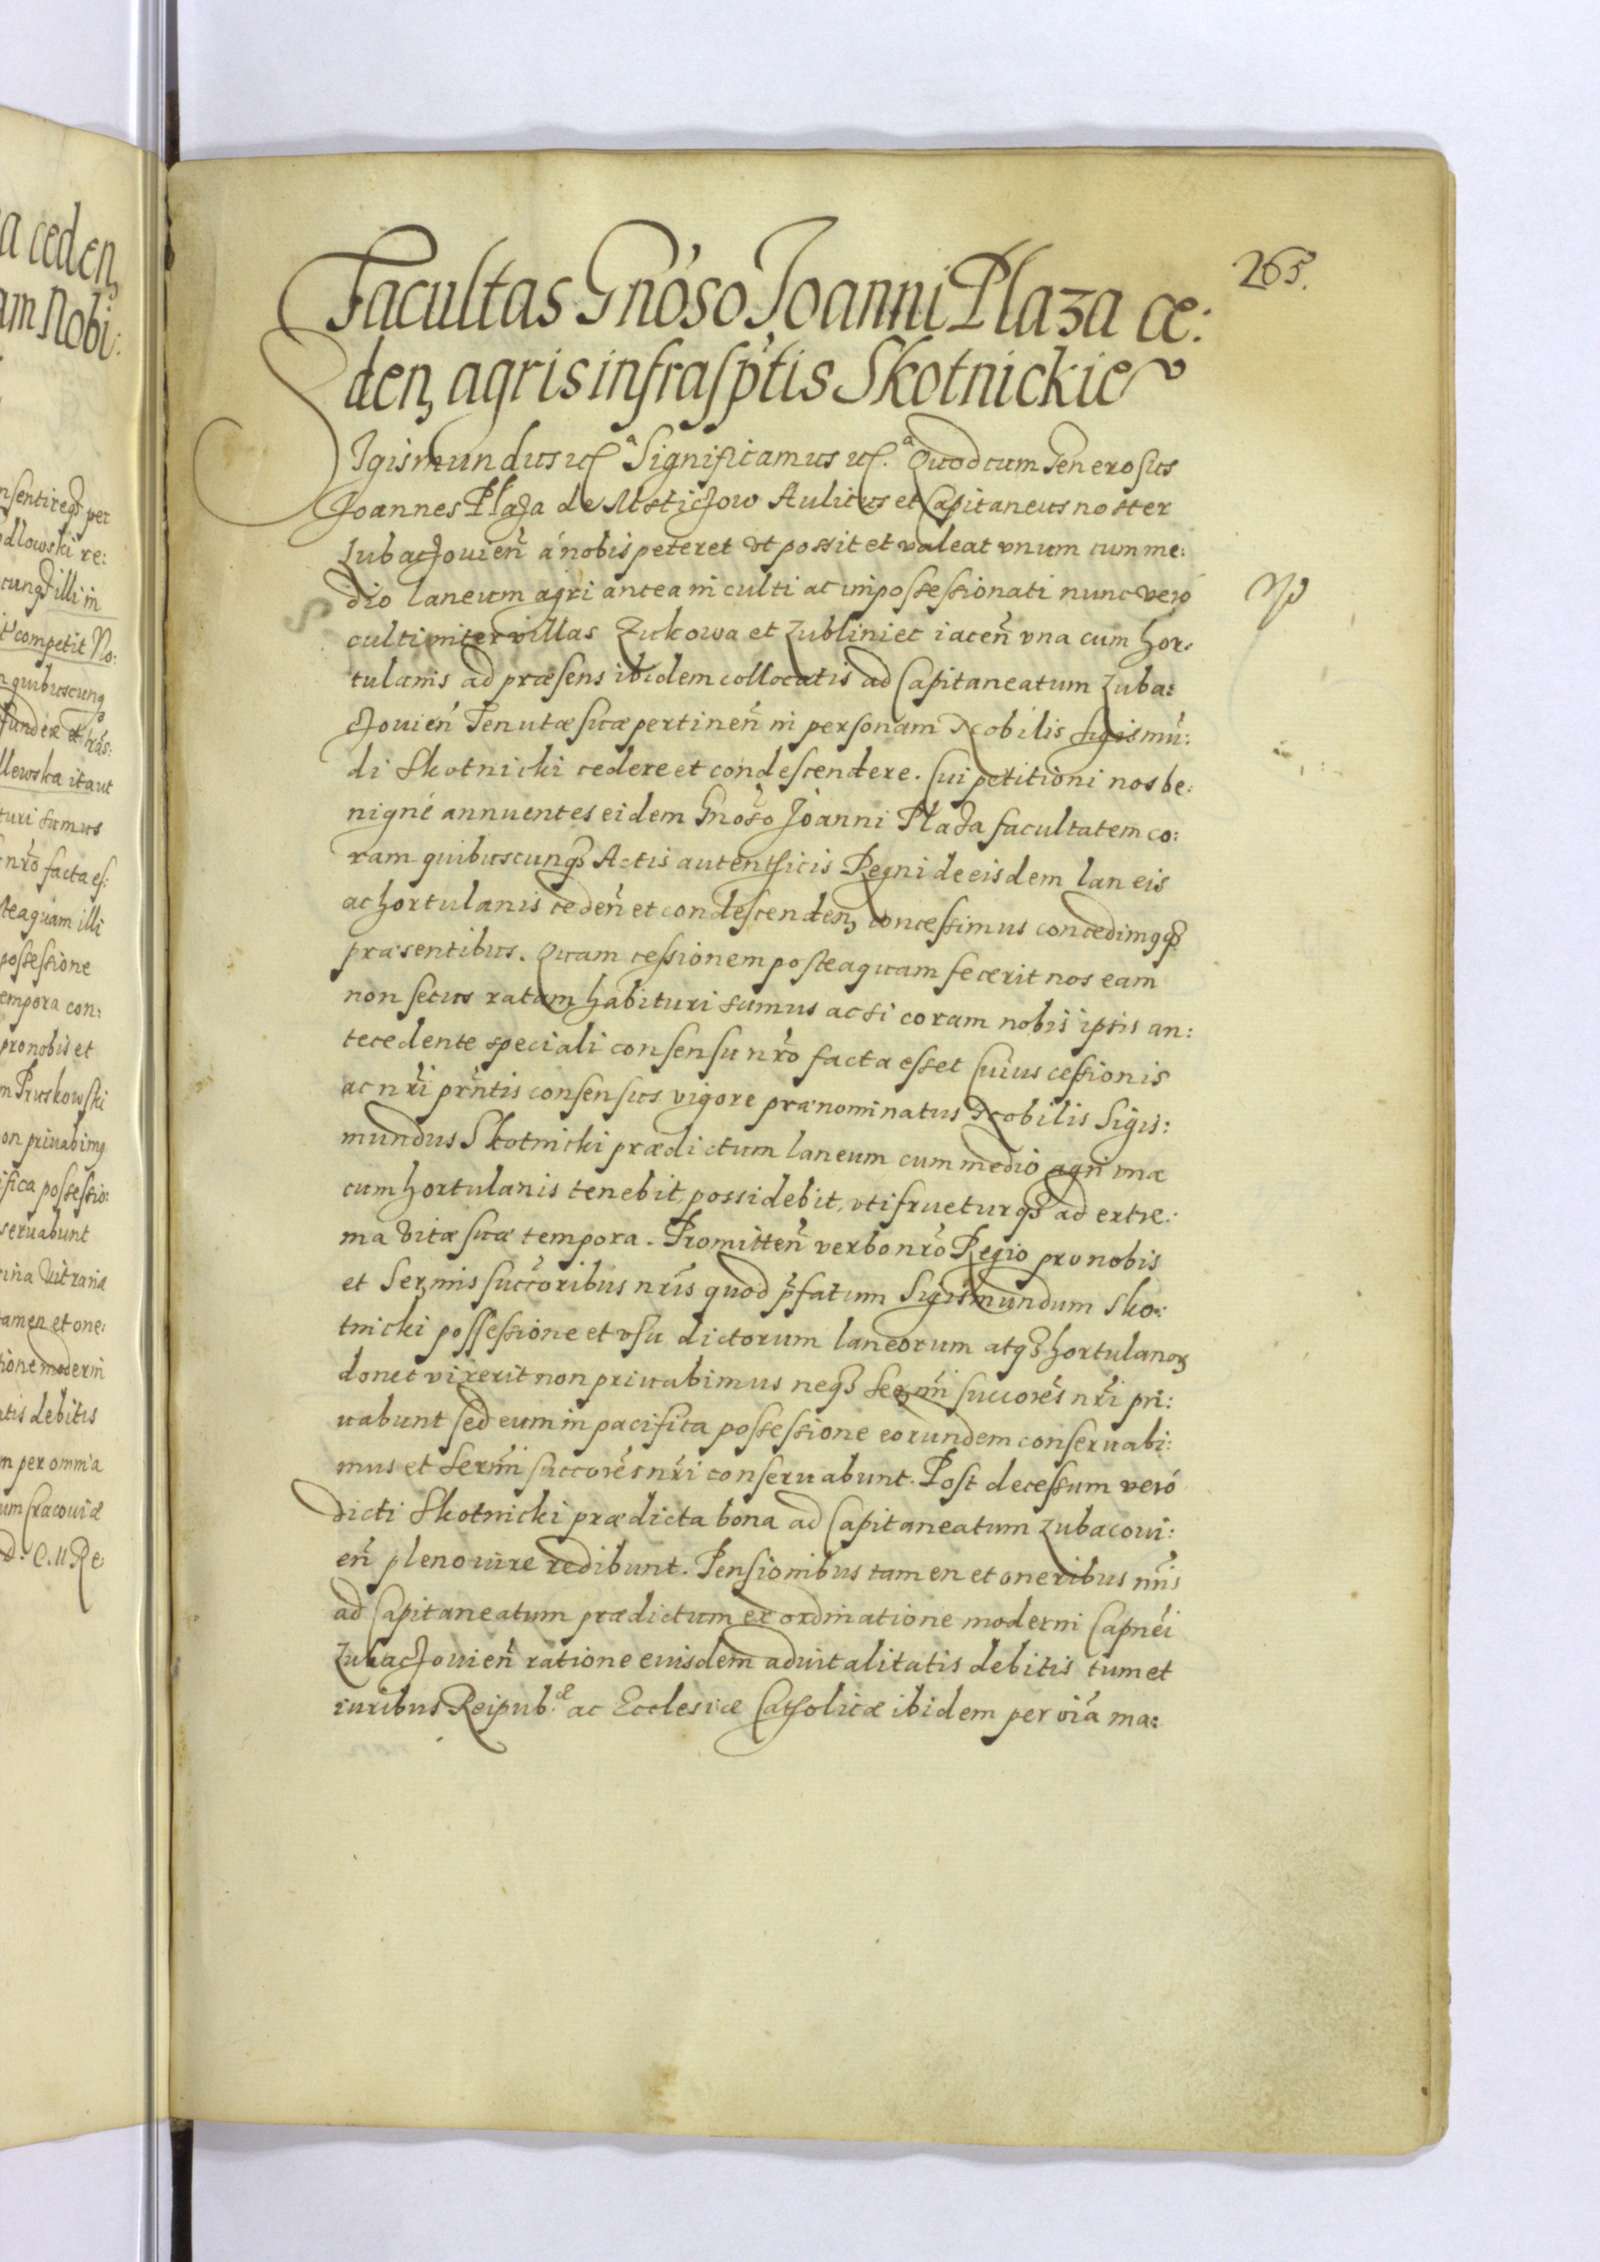 a ceden
am Nobi:
nsentireq3 per
odlowski re:
cunq3 illi in
t competit No:
n quibuscunq
fundere et hrs:
llewska itaut
turi sumus
nro facta es:
teaquam illi
possessione
empora con:
pro nobis et
m Pruskowski
on priuabimq
ifica possessio:
seruabunt
tamen et one:
tione moderni
atis debitis
m per omnia
um Cracouiæ
265.
Facultas Gnoso Joanni Plaza ce:
den, agris infrasptis Skotnickie
Sigismundus etc a Significamus etc. a Quod cum Generosus
Joannes Plaza de Msticzow Aulicus et Capitaneus noster
Lubaczouien a nobis peteret vt possit et valeat vnum cum me:
dio laneum agri antea in culti ac impossessionati nunc vero
culti inter villas Zukowa et Zubliniec iacen vna cum hor:
tulanis ad præsens ibidem collocatis ad Capitaneatum Luba:
czouien Tenutæ suæ pertinen in personam Nobilis Sigismu:
di Skotnicki cedere et condescendere. Cui petitioni nos be:
nigne annuentes eidem Gnoso Joanni Plaza facultatem co:
ram quibuscunq3 Actis autenthicis Regni de eisdem laneis
ac hortulanis ceden et condescenden, concessimus concedimqq3
præsentibus. Quam cessionem posteaquam fecerit nos eam
non secus ratam habituri sumus ac si coram nobis ipsis an:
tecedente speciali consensu nro facta esset Cuius cessionis
ac nri prntis consensus vigore prænominatus Nobilis Sigis:
mundus Skotnicki prædictum laneum cum medio agri vna
cum hortulanis tenebit, possidebit, vtifrueturq3 ad extre:
ma vitæ suæ tempora. Promitten verbo nro Regio pro nobis
et Sermis succoribus nris quod pfatum Sigismundum Sko:
tnicki possessione et vsu dictorum laneorum atq3 hortulanor
donec vixerit non priuabimus neq3 Sermi succores nri pri:
uabunt sed eum in pacifica possessione eorundem conseruabi:
mus et Sermi succores nri conseruabunt. Post decessum vero
dicti Skotnicki prædicta bona ad Capitaneatum Lubacoui:
en pleno iure redibunt. Pensionibus tamen et oneribus nris
ad Capitaneatum prædictum ex ordinatione moderni Capnei
Lubaczouien ratione euisdem aduitalitatis debitis tum et
iuribus Reipub.æ ac Ecclesiæ Catholicæ ibidem per oia ma: